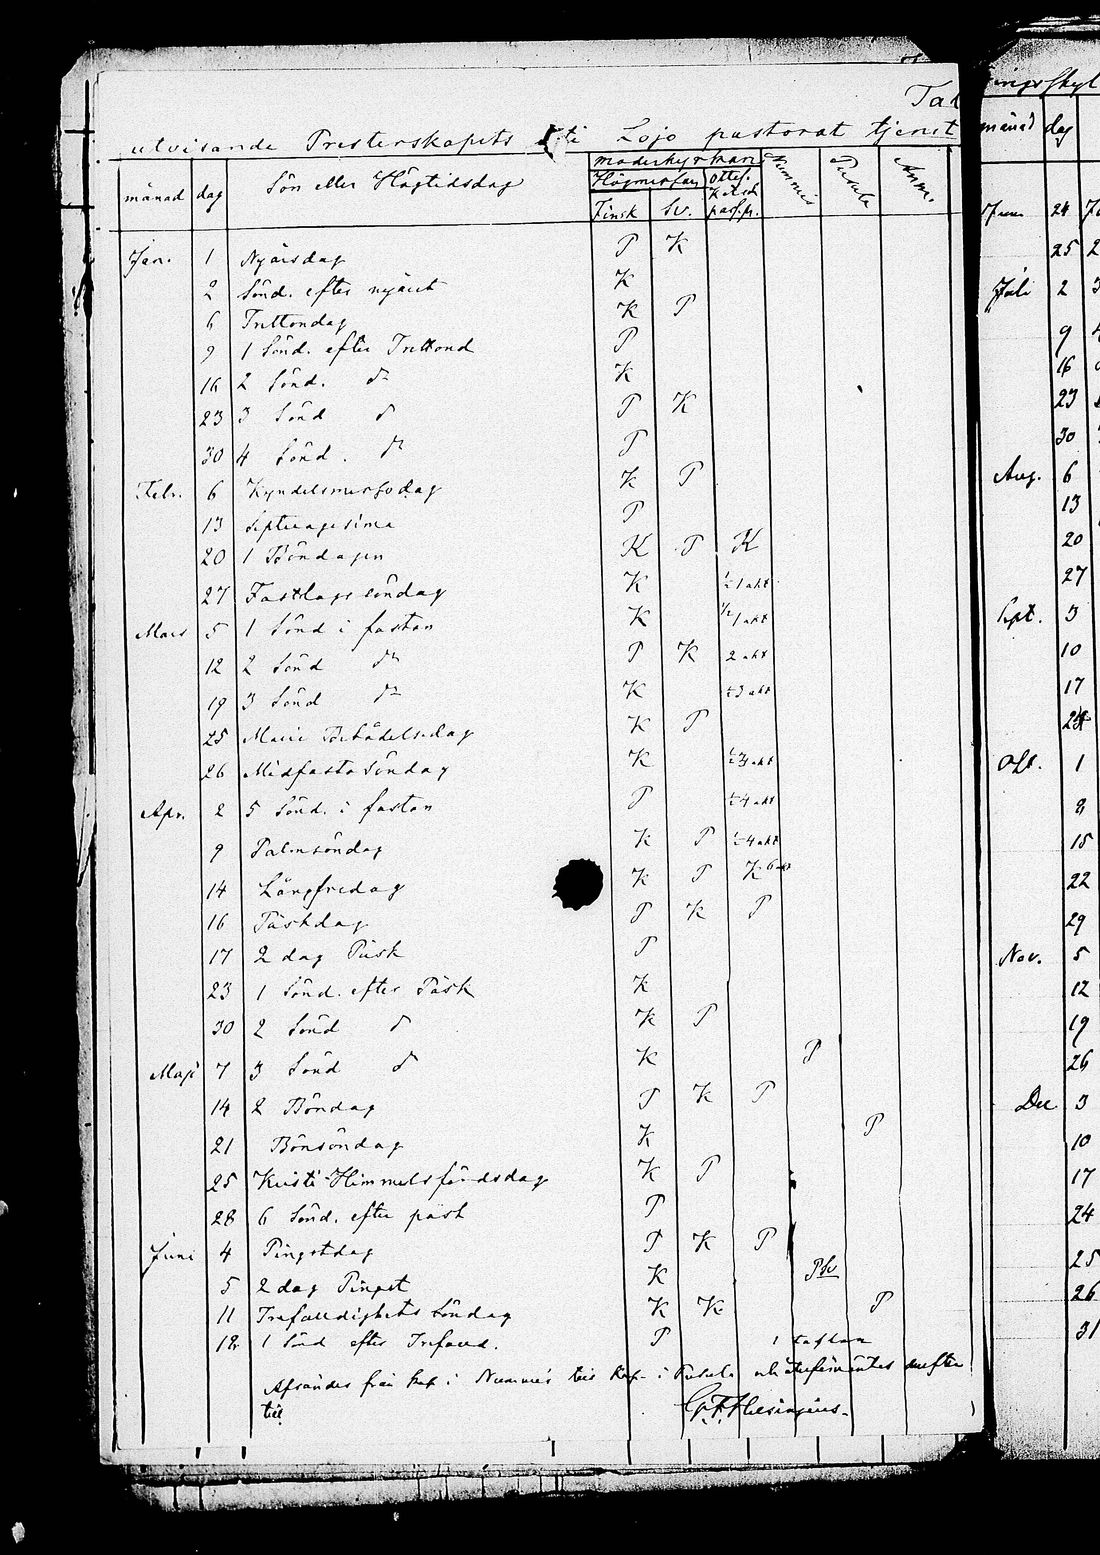 Tab
utvisande Presterskapets i Lojo pastorat tjenst
månad dag Sön eller Högtidsdag moderkyrkan Nummis Pusula Anm.
Högmessan Ottes.
Finsk Sv. pass.pr.
Jan. 1 Nyårsdag P K
2 Sönd. efter nyåret K
6 Trettondag K P
9 1 Sönd. efter Trettond P
16 2 Sönd. d:o K
23 3 Sönd d:o P K
30 4 Sönd. d:o P
Febr. 6 Kyndelsmessodag K P
13 Septuagesima P
20 1 Böndagen K P K
27 Fastlagssöndag K ½ 1 akt
Mars 5 1 Sönd i fastan K ½ 1 akt
12 2 Sönd d:o P K 2 akt
19 3 Sönd d:o K ½ 3 akt
25 Marie Bebådelsedag K P
26 Midfastosöndag K ½ 3 akt
Apr. 2 5 Sönd. i fastan P ½ 4 akt
9 Palmsöndag K P ½ 4 akt
14 Långfredag K P K 6 akt
16 Påskdag P K P
17 2 dag Påsk P
23 1 Sönd. efter Påsk K
30 2 Sönd d:o K P
Maji 7 3 Sönd d:o K P
14 2 Böndag P K P
21 Bönsöndag K P
25 Kristi Himmelsfärdsdag K P
28 6 Sönd. efter påsk P
Juni 4 Pingstdag P K P
5 2 dag Pingst K P
11 Trefalldighets Söndag K K P
18 1 Sönd efter Trefald. P
Afsändes från kap. i Nummis till Kap. i Pusula och
till
månad dag
Juni 24
25 2
Juli 2 3
9 4
16
23
30
Aug. 6
13
20
27
Sept. 3
10
17
24
Okt. 1
8
15
22
29
Nov. 5
12
19
26
Dec 3
10
17
24
25
26
31